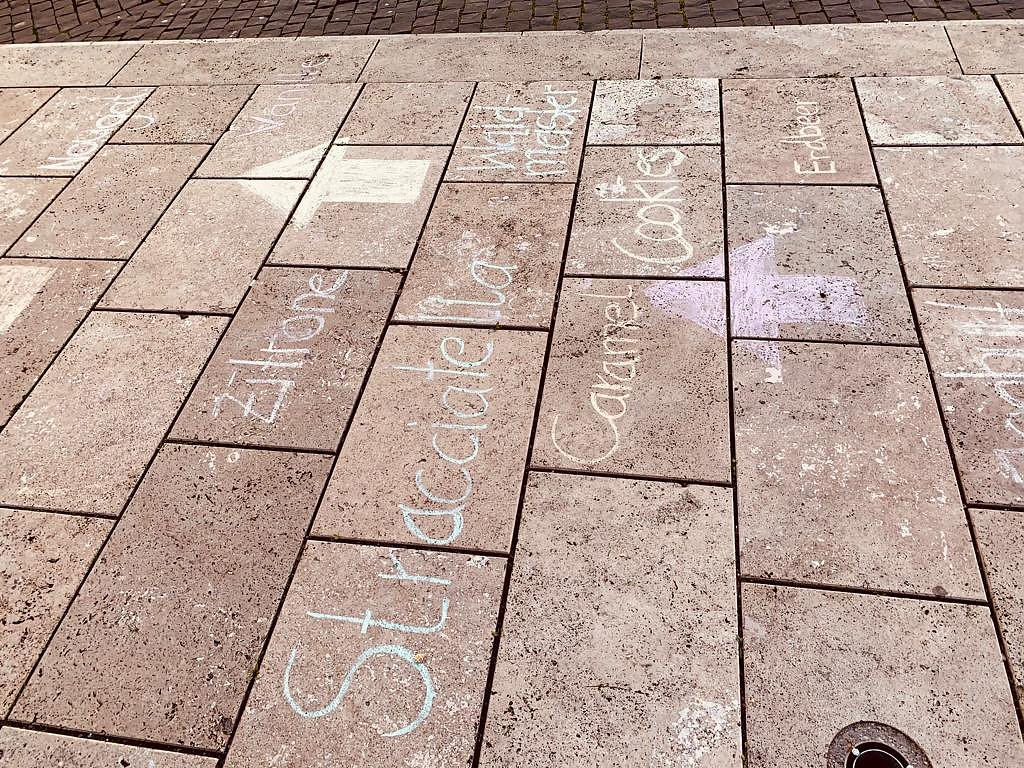 Nougat
Vanille
Zitrone
Wald-
master
Stracciatella
Cookies
Caramel
Erdbeer